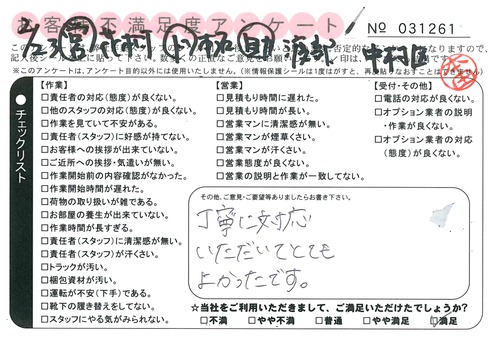 お客様不満足度アンケート
№ 031261
チェックリスト
【作業】
□責任者の対応(態度)が良くない。
□他のスタッフの対応(態度)が良くない。
□作業を見ていて不安がある。
□責任者(スタッフ)に好感が持てない。
□お客様への挨拶が出来ていない。
□ご近所への挨拶・気遣いが無い。
□作業開始前の内容確認がなかった。
□作業開始時間が遅れた。
□荷物の取り扱いが雑である。
□お部屋の養生が出来ていない。
□作業時間が長すぎる。
□責任者(スタッフ)に清潔感が無い。
□責任者(スタッフ)が汗くさい。
□トラックが汚い。
□梱包資材が汚い。
□運転が不安(下手)である。
□靴下の履き替えをしてない。
□スタッフにやる気がみられない。
【営業】
□見積もり時間に遅れた。
□見積もり時間が長い。
□営業マンに清潔感が無い。
□営業マンが煙草くさい。
□営業マンが汗くさい。
□営業態度が良くない。
□営業の説明と作業が一致してない。
【受付・その他】
□電話の対応が良くない。
□オプション業者の説明
・作業が良くない。
□オプション業者の対応
(態度)が良くない。
その他、ご意見・ご要望等ありましたらお書き下さい。
丁寧に対応
いただいてとても
よかったです。
☆当社をご利用いただきまして、ご満足いただけたでしょうか?
□不満 □やや不満 □普通 □やや満足 □満足